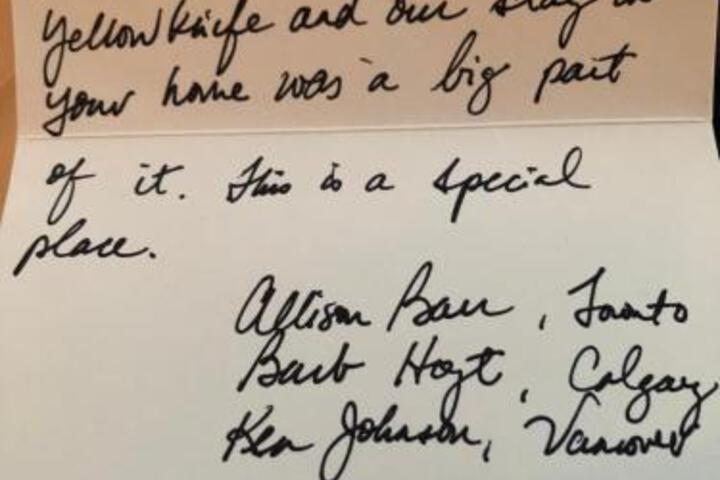 Yellowknife and our stay in
your home was a big part
of it. This is a special
place.
Allison Barr, Toronto
Barb Hoyt, Calgary
Ken Johnson, Vancouver